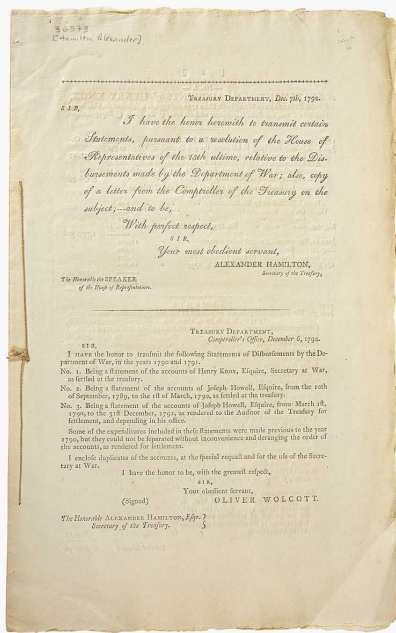 36373
[Hamilton, Alexander]
TREASURY DEPARTMENT, Dec. 7th, 1792.
SIR,
I have the honor herewith to transmit certain
Statements, pursuant to a resolution of the House of
Representatives of the 13th ultimo, relative to the Dis-
bursements made by the Department of War; also, copy
of a letter from the Comptroller of the Treasury on the
subject;---and to be,
With perfect respect,
SIR,
Your most obedient servant,
ALEXANDER HAMILTON,
Secretary of the Treasury,
The Honorable the SPEAKER
of the House of Representatives.
TREASURY DEPARTMENT,
Comptroller's Office, December 6, 1792.
SIR,
I HAVE the honor to transmit the following Statements of Disbursements by the De-
partment of War, in the years 1790 and 1791.
No. 1. Being a statement of the accounts of Henry Knox, Esquire, Secretary at War,
as settled at the treasury.
No. 2. Being a statement of the accounts of Joseph Howell, Esquire, from the 10th
of September, 1789, to the 1st of March, 1790, as settled at the treasury.
No. 3. Being a statement of the accounts of Joseph Howell, Esquire, from March 1st,
1790, to the 31st December, 1791, as rendered to the Auditor of the Treasury for
settlement, and depending in his office.
Some of the expenditures included in these statements were made previous to the year
1790, but they could not be separated without inconvenience and deranging the order of
the accounts, as rendered for settlement.
I enclose duplicates of the accounts, at the special request and for the use of the Secre-
tary at War.
I have the honor to be, with the greatest respect,
SIR,
Your obedient servant,
(Signed) OLIVER WOLCOTT.
The Honorable ALEXANDER HAMILTON, Esqr.
Secretary of the Treasury.